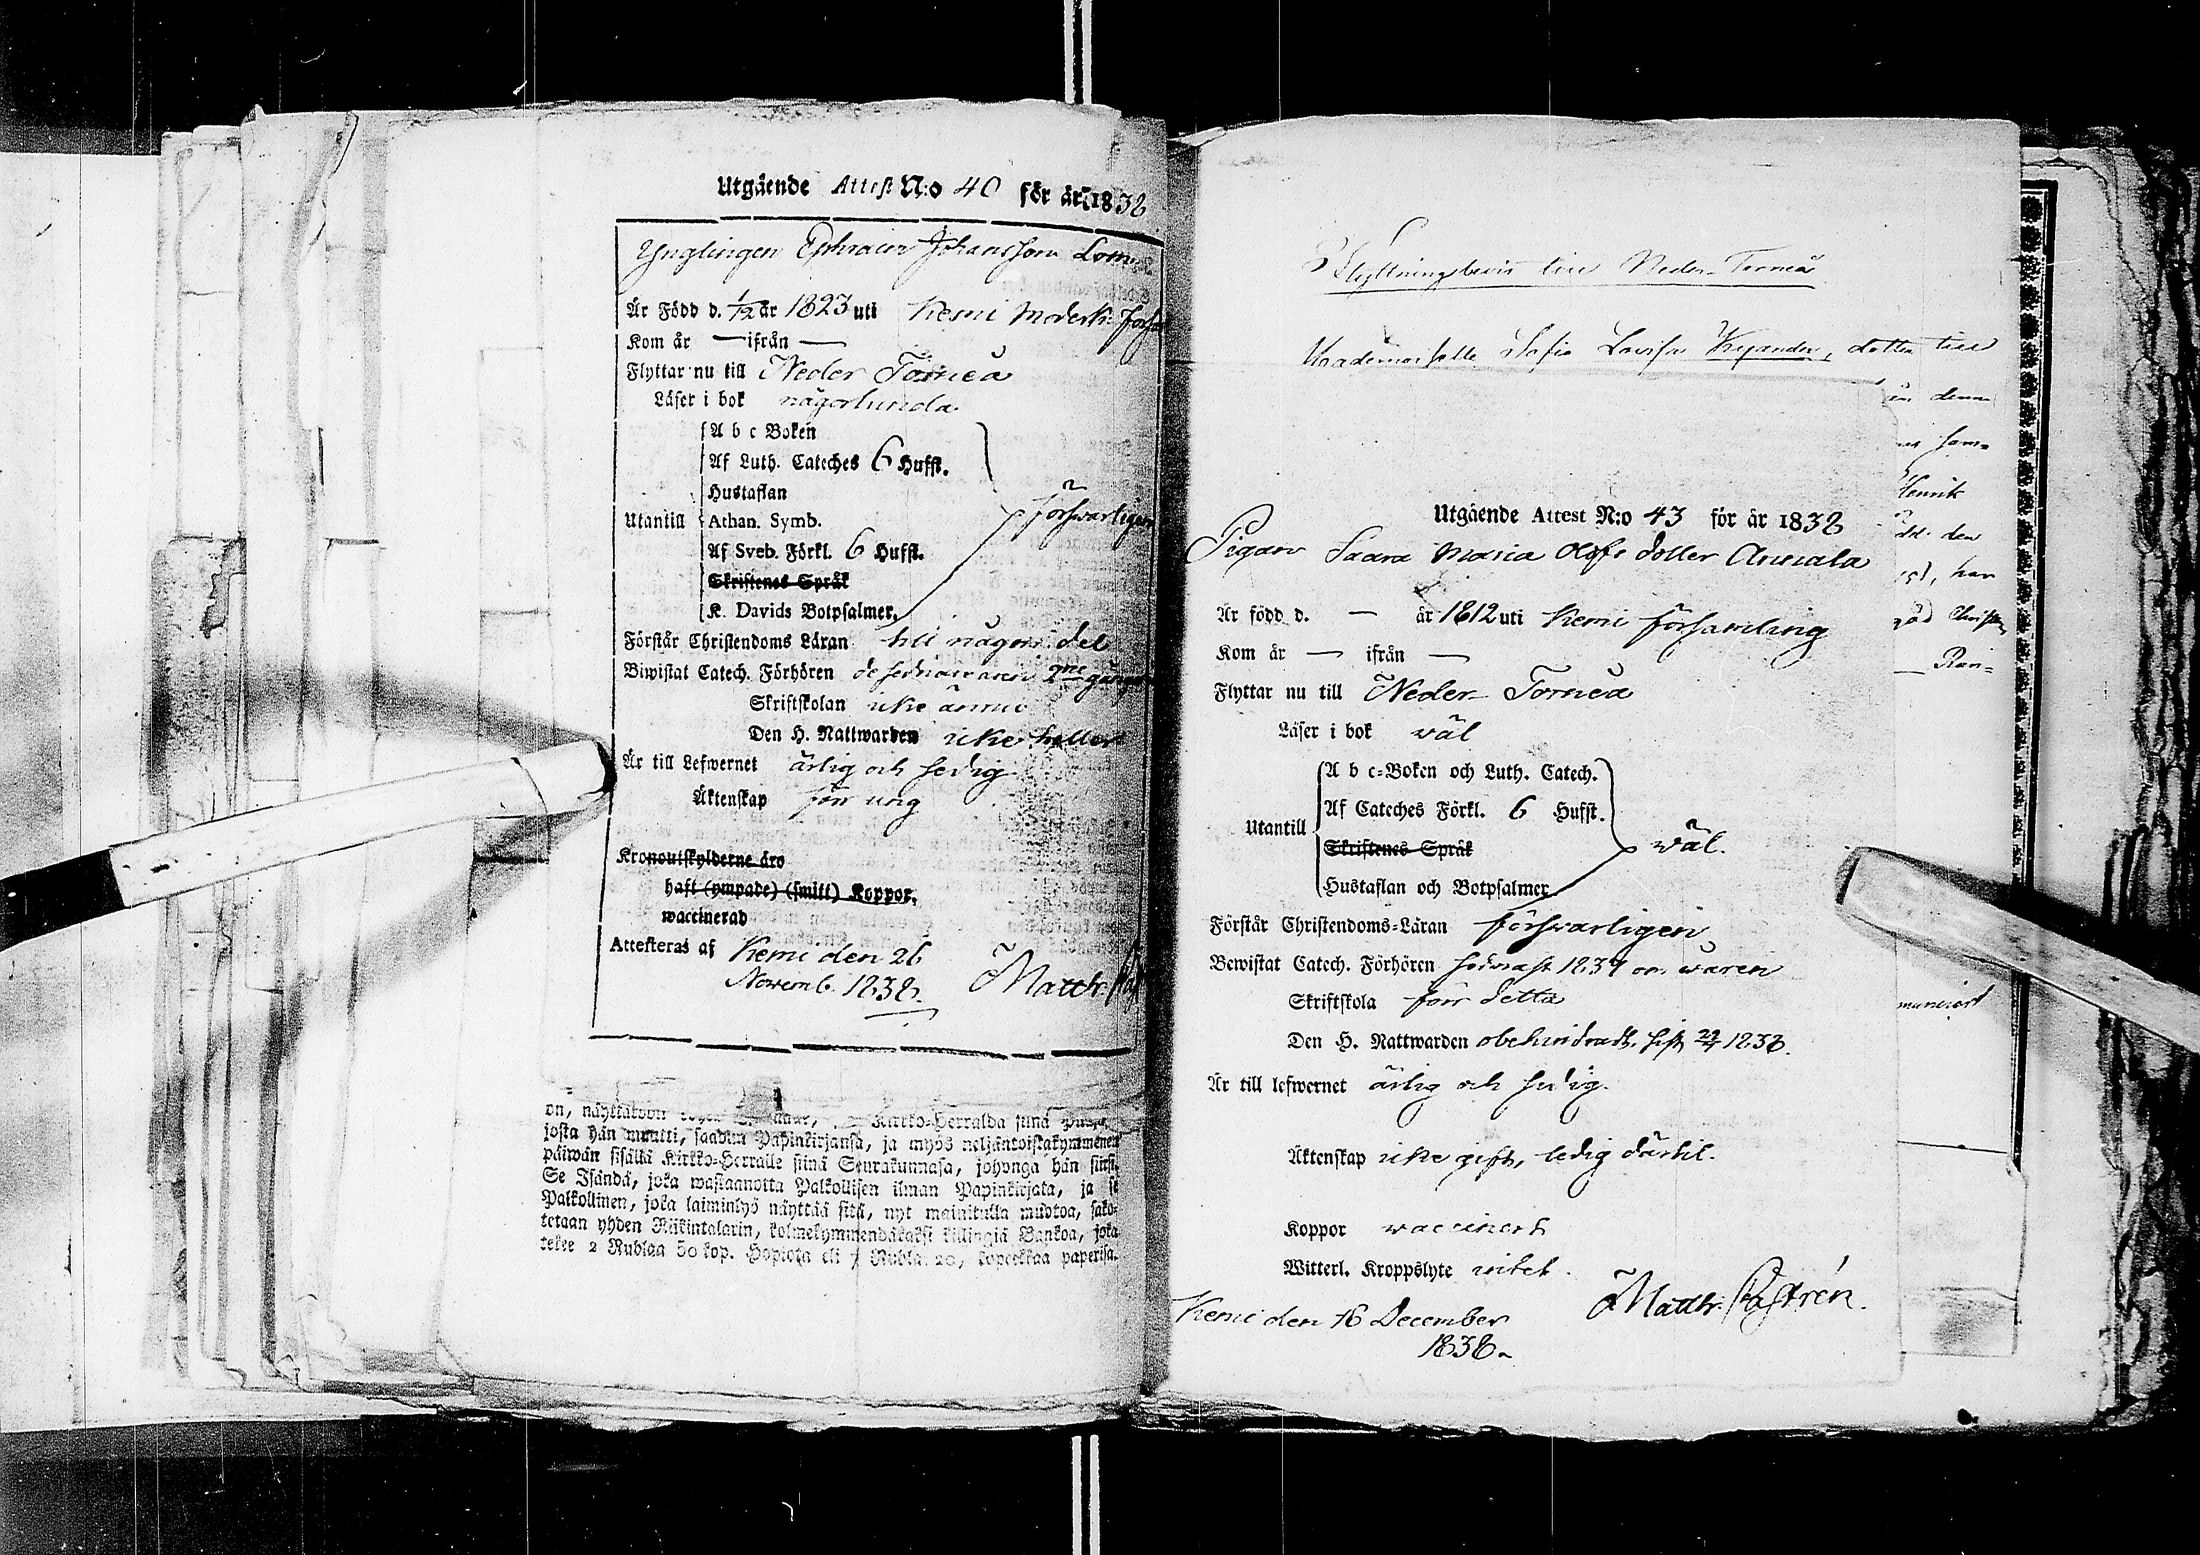 Utgående Attest N:o 40 för år 1838
Ynglingen Ephraim Johansson
Är Född d. 1/12 år 1823 uti Kemi moderk.
Kom år — ifrån —
Flyttar nu till Neder Torneå
Läser i bok någorlunda
Utantill
A b c Boken
Af Luth. Cateches 6 Hufst.
Hustaflan
Athan. Symb.
Af Sveb. Förkl. 6 Hufst.
Skriftenes Språk
K. Davids Botpsalmer.
försvarligen
Förstår Christendoms Läran till någon del
Biwistat Catech. Förhören de sednare åren 2ne
Skriftskolan icke ännu
Den H. Nattwarden icke heller
Är till Lefwernet ärlig och sedig
Äktenskap för ung
Kronoutskylderne äro
haft (ympade) (smitt) Koppor.
waccinerad
Attesteras af Kemi den 26
Novemb. 1838. Matth.
on, näyttäkoon Kirko-Herralda siinä
josta hän muutti, saadun Papinkirjansa, ja myös neljäntoistakymmenen
päiwän sisällä Kirkko-Herralle siinä Seurakunnasa, johonga hän siirsi.
Se Isändä, joka wastaanotta Palkollisen ilman Papinkirjata, ja se
Palkollinen, joka laiminlyö näyttää sitä, nyt mainitulla muotoa, sako-
tetaan yhden Riikintalarin, kolmekymmendäkaksi killingiä Bankoa, joka
tekee 2 Rublaa 50 kop. Hopiota eli 7 Rubla 20, kopeekkaa paperisa.
Flyttningsbevis till Neder-Torneå
Mademoiselle Sofia Lovisa Kyander, dotter till
denna
som
Henrik
den
han
god Christen
Utgående Attest N:o 43 för år 1838
Pigan Saara Maria Olofs dotter Annala
Är född d. — år 1812 uti Kemi församling
Kom år — ifrån —
Flyttar nu till Neder-Torneå
Läser i bok wäl
Utantill
A b c-Boken och Luth. Catech.
Af Cateches Förkl. 6 Hufst.
Skriftenes Språk
Hustaflan och Botpsalmer
wäl.
Förstår Christendoms-Läran försvarligen
Bewistat Catech. Förhören sednast 1837 om våren
Skriftskola förr detta
Den H. Nattwarden obehindradt, sist 1838.
Är till lefwernet ärlig och sedig.
Äktenskap icke gift, ledig därtil.
Koppor waccinerd
Witterl. Kroppslyte intet.
Kemi den 16 December
1838.
Matth. Castrén.